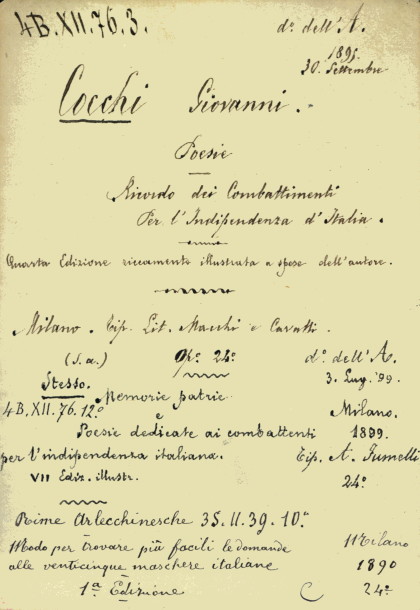 4B.XII.76.3. d°. dell'A.
1895.
30. Settembre
Cocchi Giovanni.
Poesie
Ricordo dei Combattimenti
Per l'Indipendenza d'Italia.
Quarta Edizione riccamente illustrata a spese dell'autore.
Milano. Tip. Lit. Macchi e Cavatti.
(s.a.) 24° d°. dell'A.
Stesso. 3. Lug. '99.
Memorie patrie
4B.XII.76.12° e Milano.
Poesie dedicate ai combattenti 1899.
per l'indipendenza italiana. Tip. A. Jumelli
VII Ediz. illustr. 24°
Rime Arlecchinesche 35.U.39.10.°
Modo per trovare più facili le domande Milano
alle venticinque maschere italiane 1890
1ª Edizione C 24°